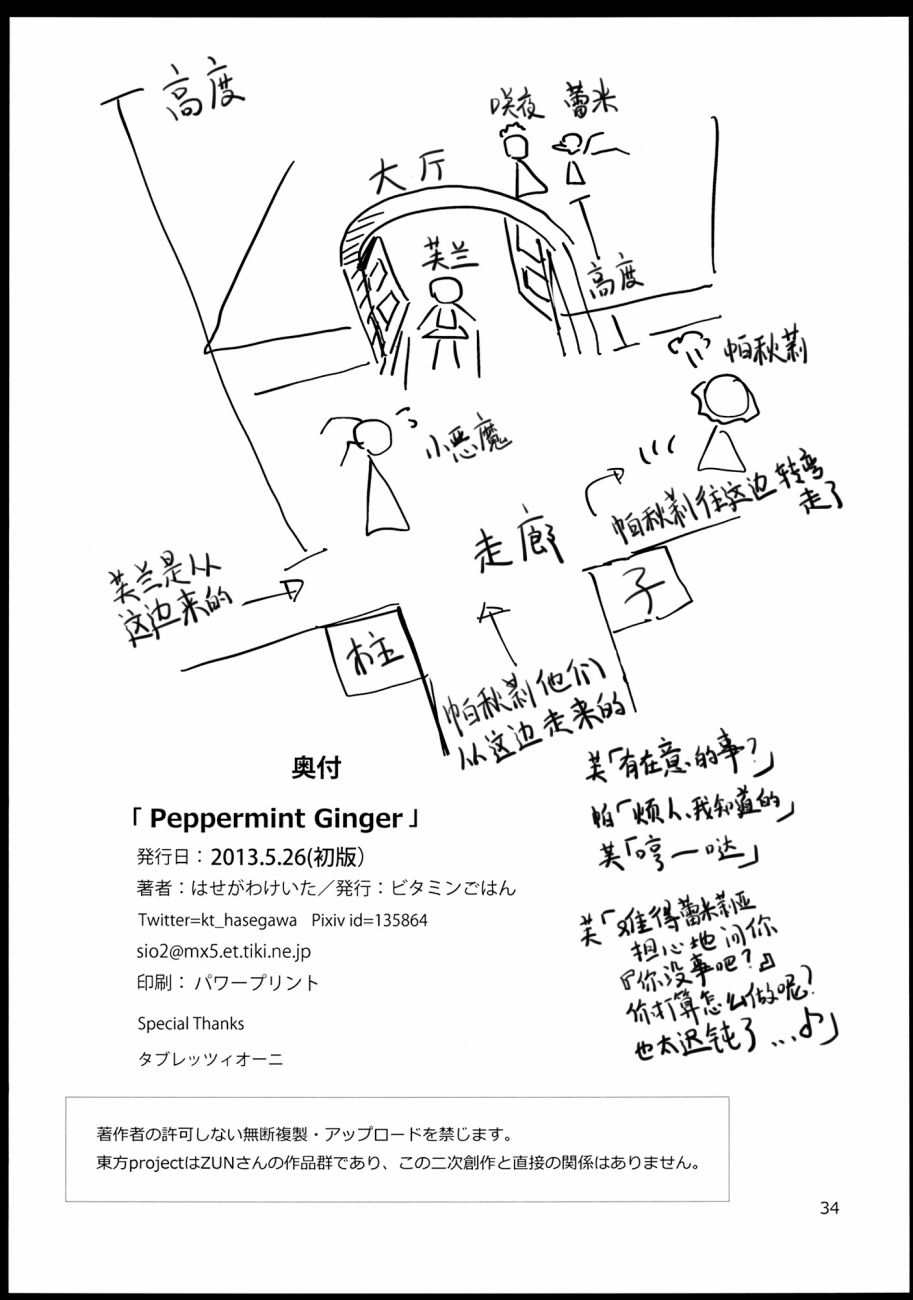 高度
咲夜 蕾米
大厅
芙兰
高度
帕秋莉
小恶魔
帕秋莉往这边转弯
走了
走廊
芙兰是从
这边来的
子
柱
帕秋莉他们
从这边走来的
芙「有在意的事？」
帕「烦人、我知道的」
芙「哼一哒」
芙「难得蕾米莉亚
担心地问你
『你没事吧？』
你打算怎么做呢？
也太迟钝了...♪」
奥付
「 Peppermint Ginger 」
発行日： 2013.5.26(初版）
著者：はせがわけいた／発行：ビタミンごはん
Twitter=kt_hasegawa Pixiv id=135864
sio2@mx5.et.tiki.ne.jp
印刷： パワープリント
Special Thanks
タブレッツィオーニ
著作者の許可しない無断複製・アップロードを禁じます。
東方projectはZUNさんの作品群であり、この二次創作と直接の関係はありません。
34